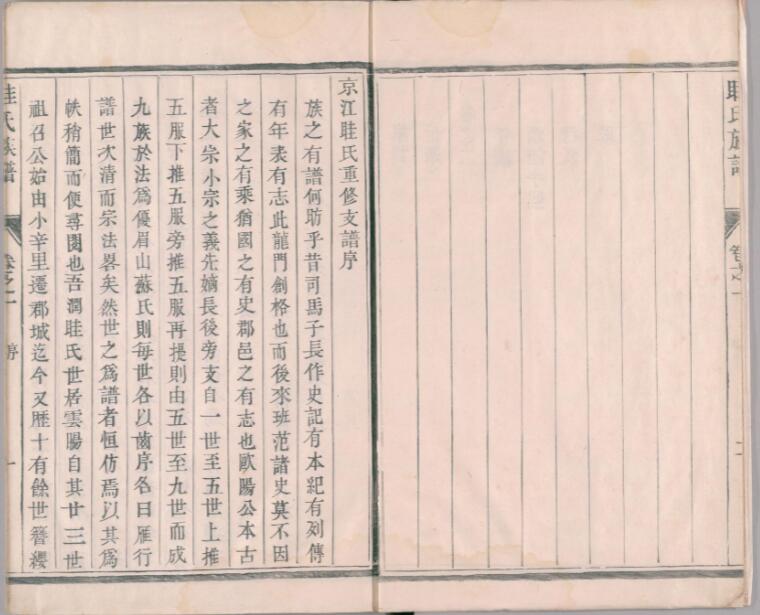 眭氏族譜
卷之一
二
京江眭氏重修支譜序
族之有譜何昉乎昔司馬子長作史記有本紀有列傳
有年表有志此龍門創格也而後來班范諸史莫不因
之家之有乘猶國之有史郡邑之有志也歐陽公本古
者大宗小宗之義先嫡長後旁支自一世至五世上推
五服下推五服旁推五服再提則由五世至九世而成
九族於法爲優眉山蘇氏則每世各以齒序名曰雁行
譜世次清而宗法畧矣然世之爲譜者恒仿焉以其爲
帙稍簡而便尋閱也吾潤眭氏世居雲陽自其廿三世
祖召公始由小辛里遷郡城迄今又歷十有餘世簪纓
眭氏族譜
卷之一
序
一